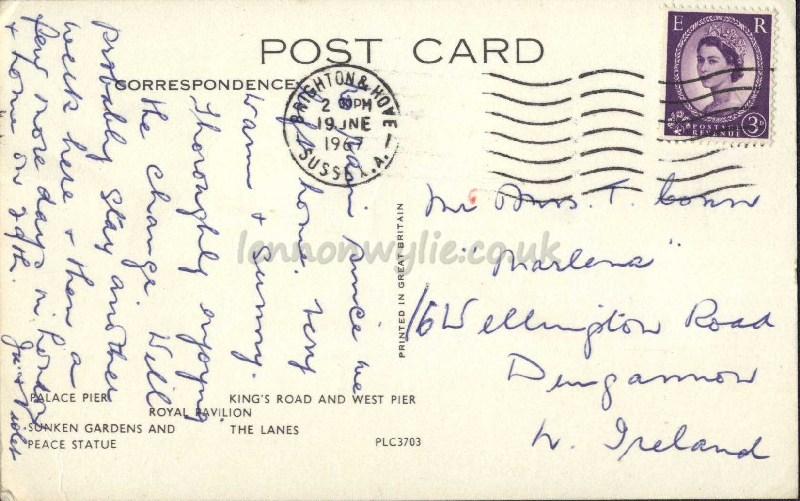 POST CARD
CORRESPONDENCE
BRIGHTON & HOVE
2 PM
19 JNE
1967
SUSSEX. A.
E R
POSTAGE
REVENUE
3D
since we
home. Very
warm & sunny.
Thoroughly enjoying
the change. Will
probably stay another
week here & then a
few more days in London
& home on 29th.
& Violet
Mr & Mrs. T. Conn
"Marlena"
16 Wellington Road
Dungannon
N. Ireland
PRINTED IN GREAT BRITAIN
PALACE PIER
KING'S ROAD AND WEST PIER
ROYAL PAVILION
SUNKEN GARDENS AND
PEACE STATUE
THE LANES
PLC3703
lennonwylie.co.uk